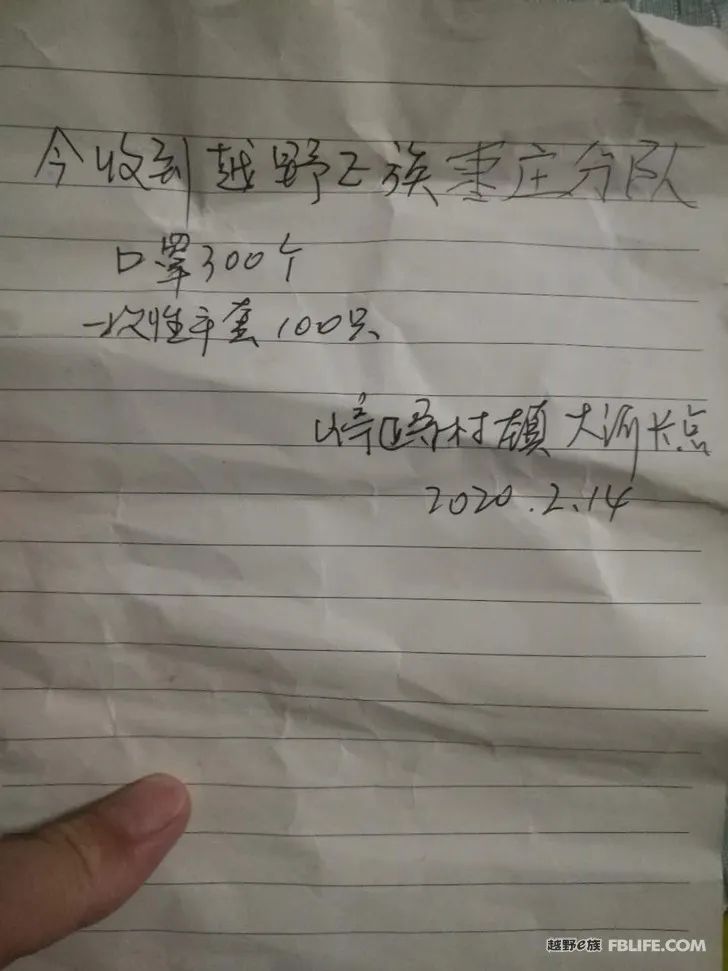 今收到越野E族枣庄分队
口罩300个
一次性手套100只
村镇大
2020.2.14
越野e族 FBLIFE.COM